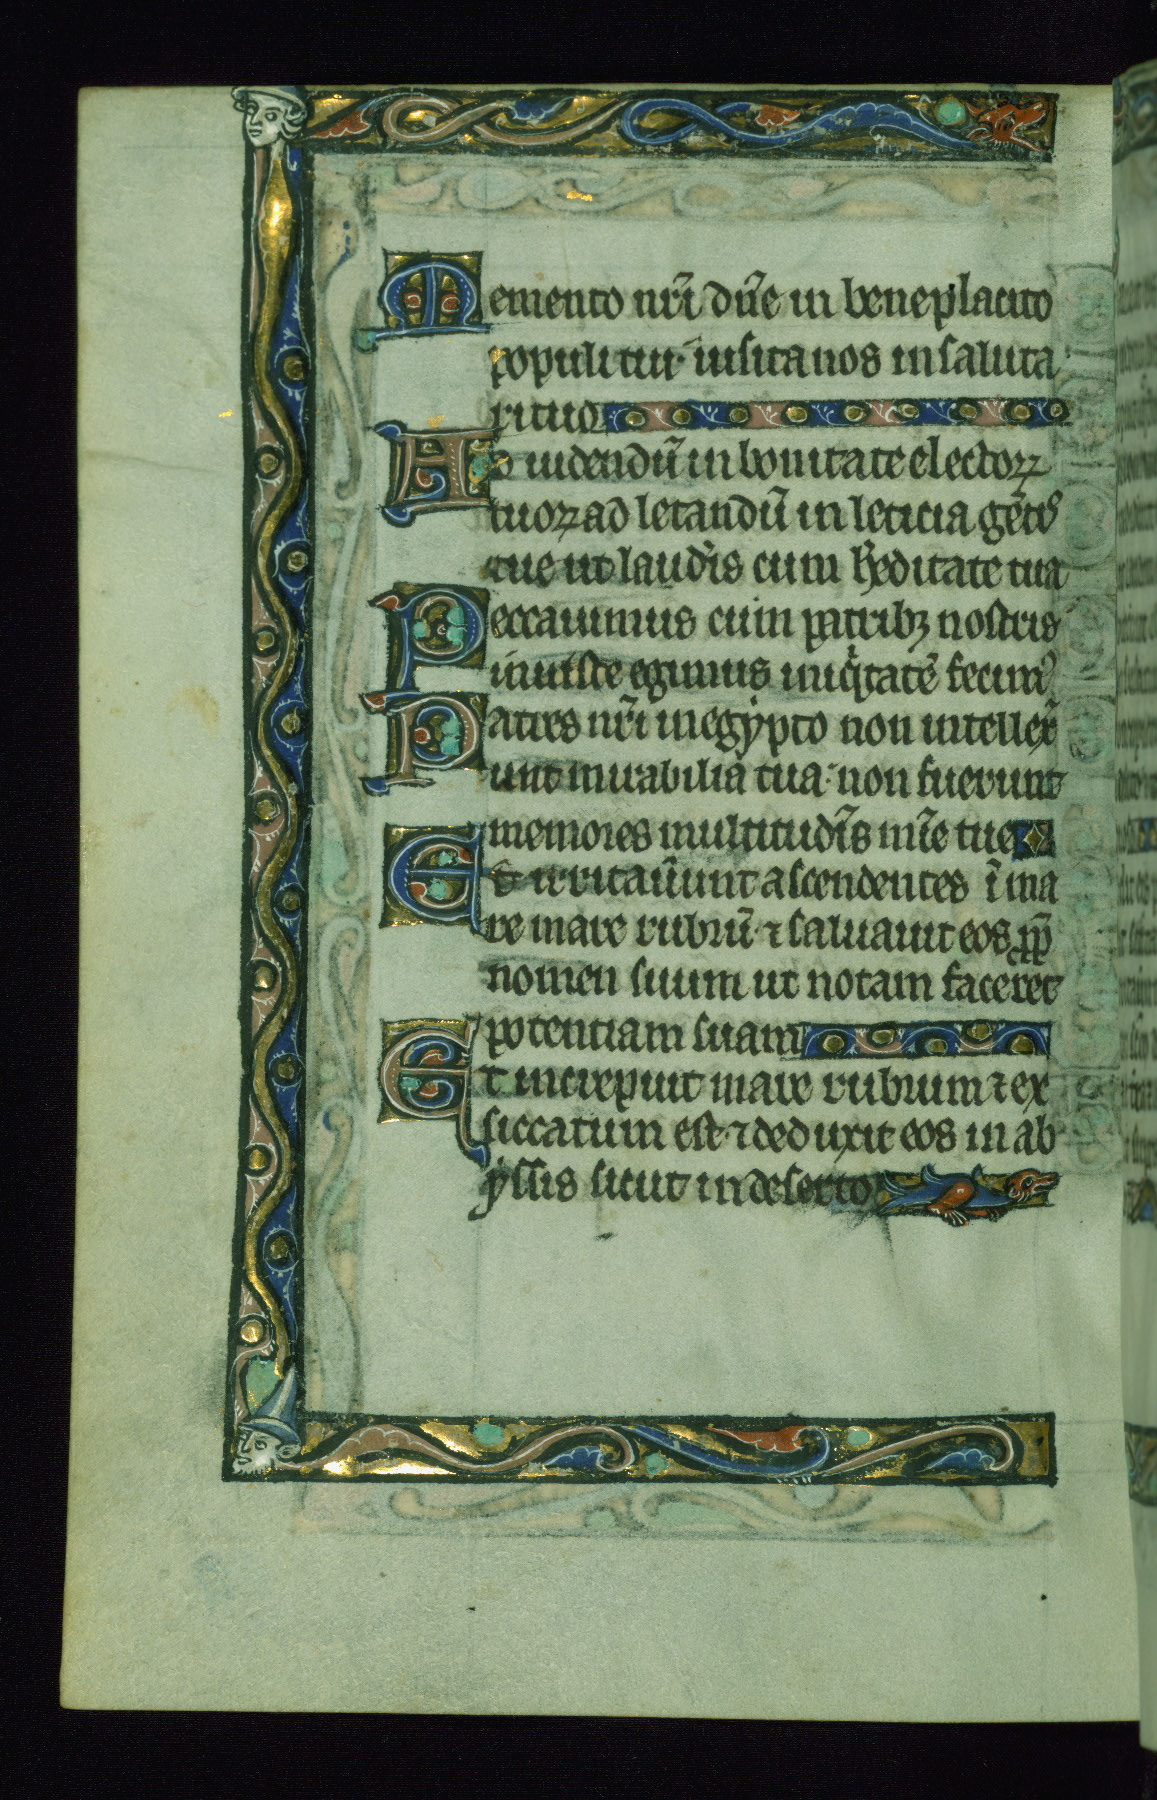 Memento nr̄i dn̄e in beneplacito
populi tui· uisita nos in saluta
ri tuo
Ad uidendū in bonitate electoꝝ
tuoꝝ ad letandū in leticia gētis
tue ut laud̾is cum h̾editate tua
Peccauimus cum patribꝫ nostris
iniuste egimus iniq̍tatē fecimꝰ
Patres nr̄i in egẏpto non intellex̾
unt mirabilia tua· non fuerunt
memores multitudīs mīe tue
Et irritau̾unt ascendentes ī ma
re mare rubrū ⁊ saluauit eos ꝓpt̾
nomen suum ut notam faceret
potentiam suam
Et increpuit mare rubrum ⁊ ex
siccatum est· ⁊ deduxit eos in ab
ẏssis sicut in deserto